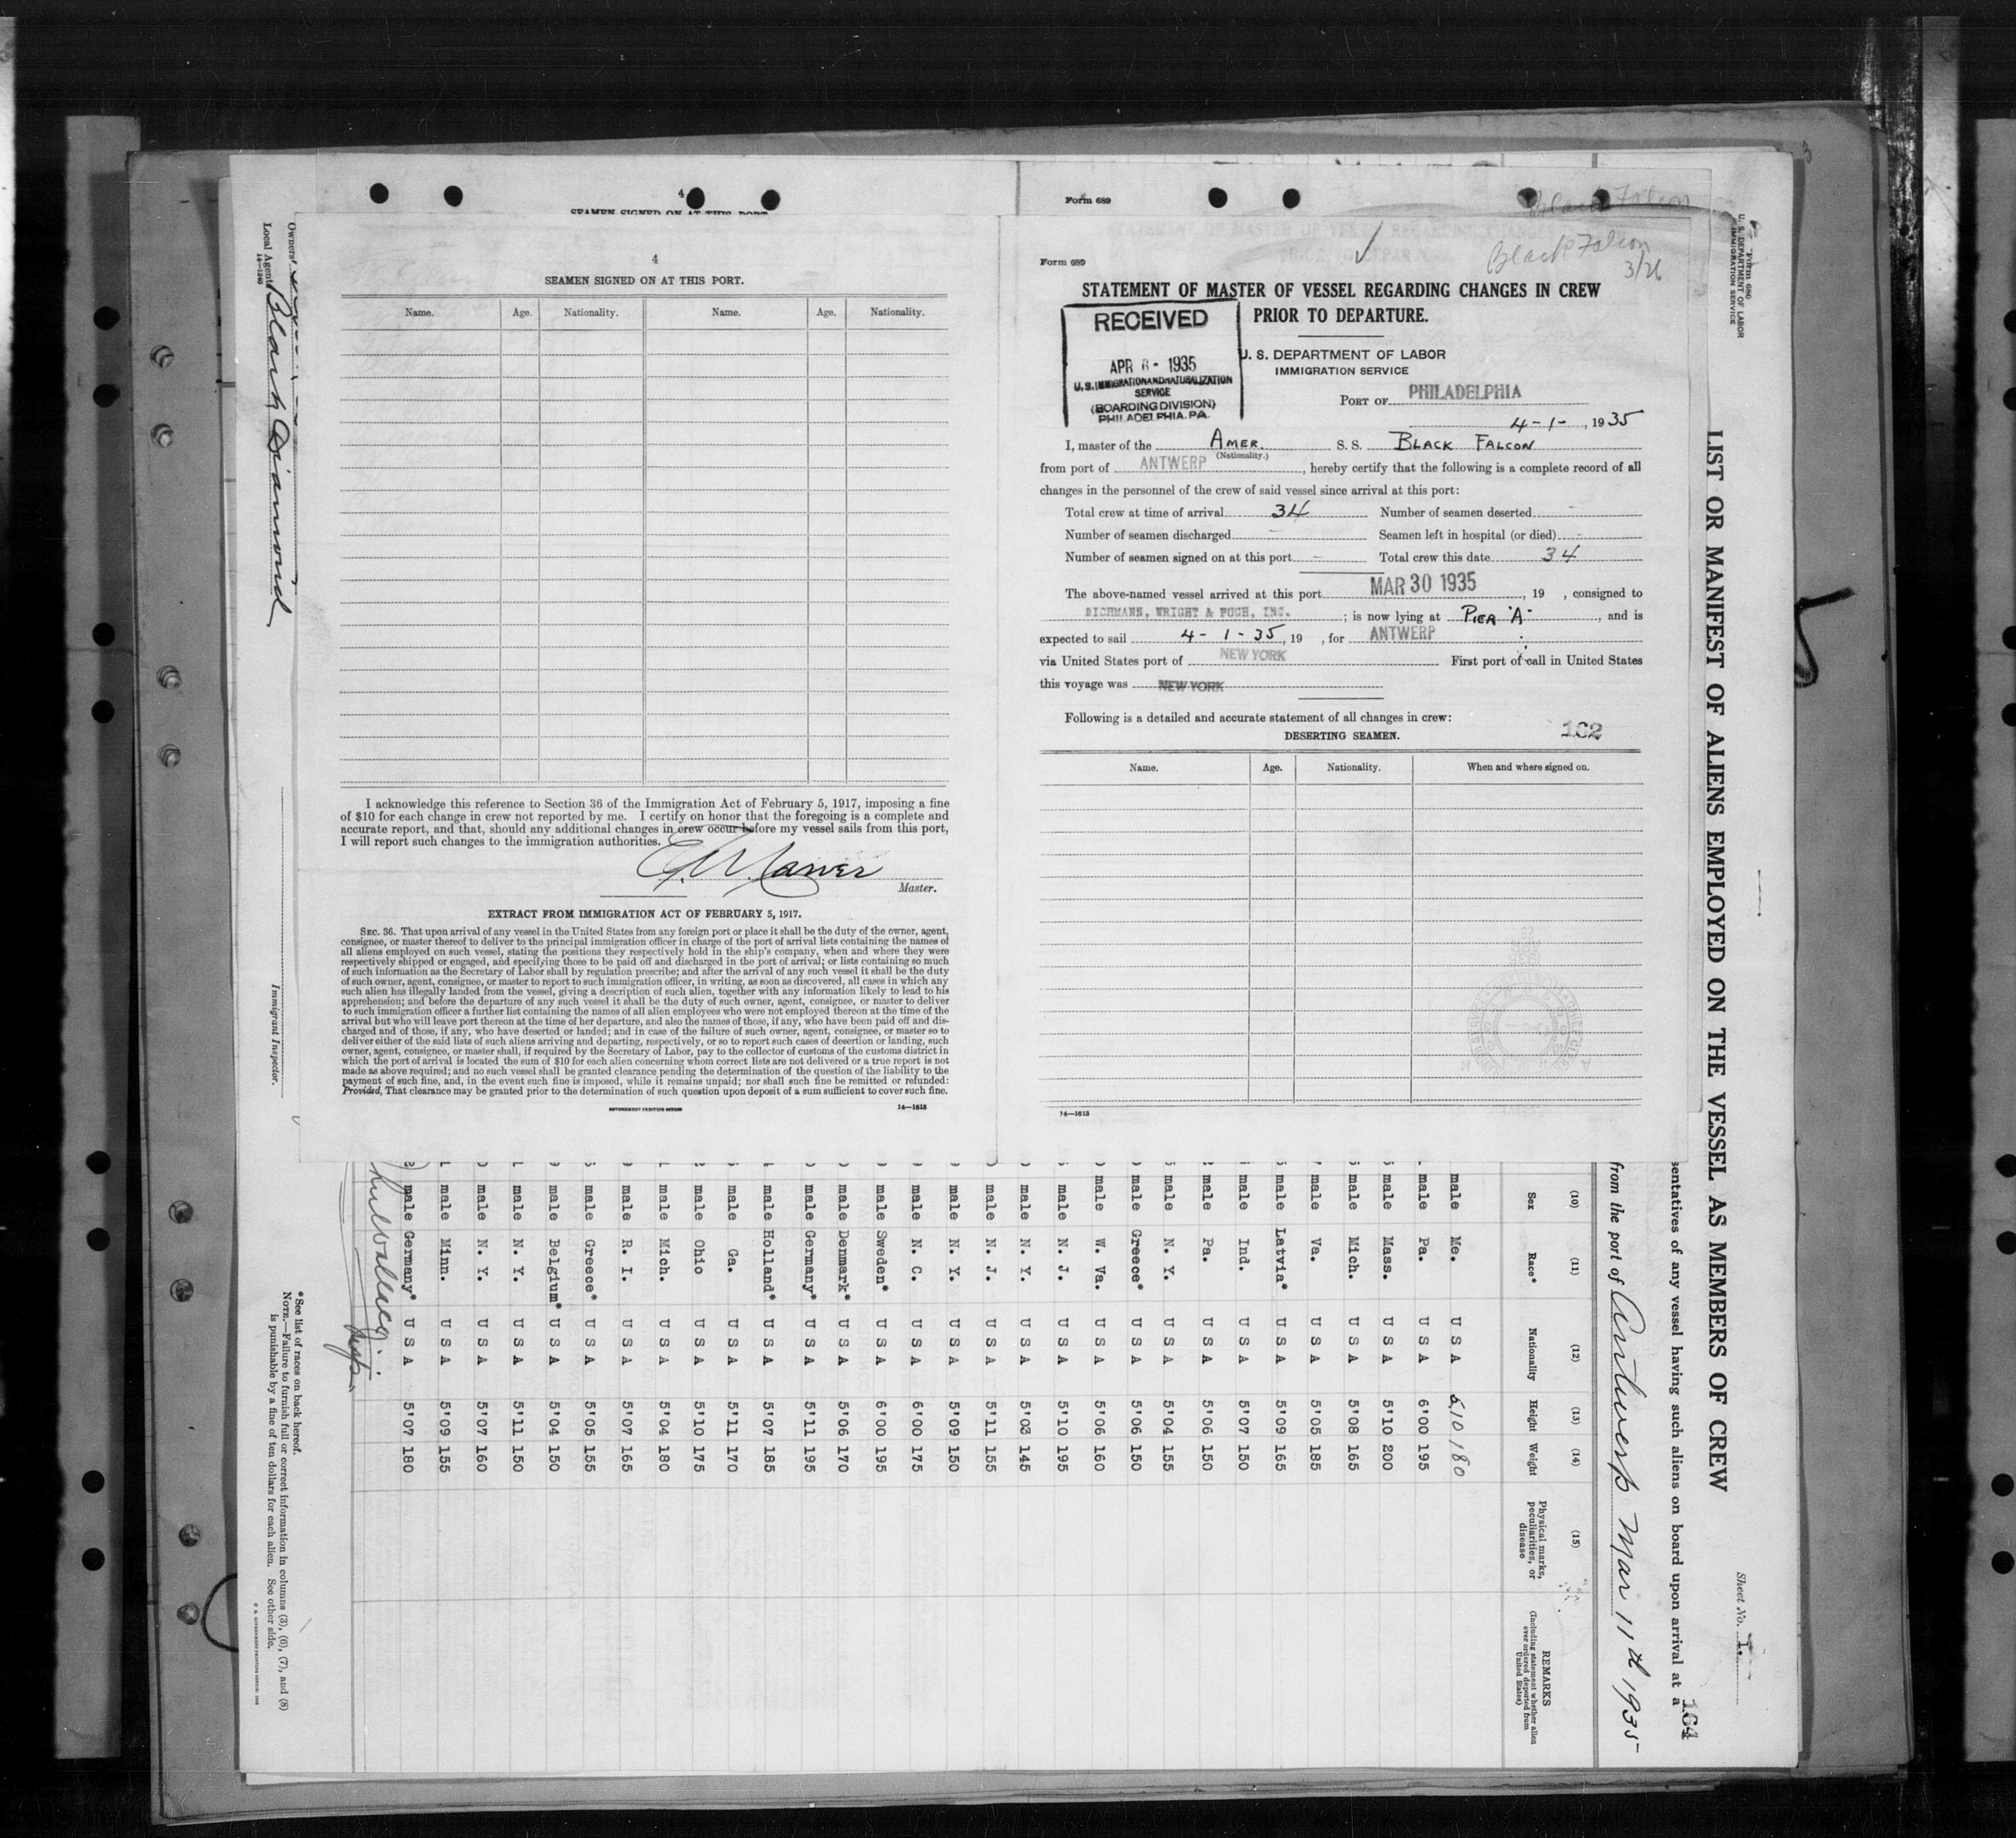 4
SEAMEN SIGNED ON AT THIS PORT.
4
SEAMEN SIGNED ON AT THIS PORT.
Name. Age. Nationality. Name. Age. Nationality.
I acknowledge this reference to Section 36 of the Immigration Act of February 5, 1917, imposing a fine
of $10 for each change in crew not reported by me. I certify on honor that the foregoing is a complete and
accurate report, and that, should any additional changes in crew occur before my vessel sails from this port,
I will report such changes to the immigration authorities.
Master.
EXTRACT FROM IMMIGRATION ACT OF FEBRUARY 5, 1917.
SEC. 36. That upon arrival of any vessel in the United States from any foreign port or place it shall be the duty of the owner, agent,
consignee, or master thereof to deliver to the principal immigration officer in charge of the port of arrival lists containing the names of
all aliens employed on such vessel, stating the positions they respectively hold in the ship's company, when and where they were
respectively shipped or engaged, and specifying those to be paid off and discharged in the port of arrival; or lists containing so much
of such information as the Secretary of Labor shall by regulation prescribe; and after the arrival of any such vessel it shall be the duty
of such owner, agent, consignee, or master to report to such immigration officer, in writing, as soon as discovered, all cases in which any
such alien has illegally landed from the vessel, giving a description of such alien, together with any information likely to lead to his
apprehension; and before the departure of any such vessel it shall be the duty of such owner, agent, consignee, or master to deliver
to such immigration officer a further list containing the names of all alien employees who were not employed thereon at the time of the
arrival but who will leave port thereon at the time of her departure, and also the names of those, if any, who have been paid off and dis-
charged and of those, if any, who have deserted or landed; and in case of the failure of such owner, agent, consignee, or master so to
deliver either of the said lists of such aliens arriving and departing, respectively, or so to report such cases of desertion or landing, such
owner, agent, consignee, or master shall, if required by the Secretary of Labor, pay to the collector of customs of the customs district in
which the port of arrival is located the sum of $10 for each alien concerning whom correct lists are not delivered or a true report is not
made as above required; and no such vessel shall be granted clearance pending the determination of the question of the liability to the
payment of such fine, and, in the event such fine is imposed, while it remains unpaid; nor shall such fine be remitted or refunded:
Provided, That clearance may be granted prior to the determination of such question upon deposit of a sum sufficient to cover such fine.
GOVERNMENT PRINTING OFFICE 14—1613
Form 689
Black Falcon
Form 689
Black Falcon
3/26
STATEMENT OF MASTER OF VESSEL REGARDING CHANGES IN CREW
PRIOR TO DEPARTURE.
RECEIVED
APR 6 - 1935
U.S. IMMIGRATION AND NATURALIZATION
SERVICE
(BOARDING DIVISION)
PHILADELPHIA. PA.
U. S. DEPARTMENT OF LABOR
IMMIGRATION SERVICE
PORT OF PHILADELPHIA
4-1-, 1935
I, master of the AMER. S. S. BLACK FALCON
(Nationality.)
from port of ANTWERP, hereby certify that the following is a complete record of all
changes in the personnel of the crew of said vessel since arrival at this port:
Total crew at time of arrival 34 Number of seamen deserted -
Number of seamen discharged - Seamen left in hospital (or died) -
Number of seamen signed on at this port - Total crew this date 34
The above-named vessel arrived at this port MAR 30 1935, 19 , consigned to
DICHMANN, WRIGHT & PUGH, INC.; is now lying at PIER "A", and is
expected to sail 4-1-35, 19 , for ANTWERP
via United States port of NEW YORK First port of call in United States
this voyage was NEW YORK
Following is a detailed and accurate statement of all changes in crew:
162
DESERTING SEAMEN.
Name. Age. Nationality. When and where signed on.
14—1613
Form 680
U. S. DEPARTMENT OF LABOR
IMMIGRATION SERVICE
LIST OR MANIFEST OF ALIENS EMPLOYED ON THE VESSEL AS MEMBERS OF CREW
Sheet No. 1.
164
sentatives of any vessel having such aliens on board upon arrival at a
from the port of Antwerp Mar 11th 1935
(10) (11) (12) (13) (14) (15)
Sex Race* Nationality Height Weight Physical marks, peculiarities, or disease REMARKS (Including statement whether alien ever ordered deported from United States)
male Me. U S A 5 10 180
male Pa. U S A 6'00 195
male Mass. U S A 5'10 200
male Mich. U S A 5'08 165
male Va. U S A 5'05 185
male Latvia* U S A 5'09 165
male Ind. U S A 5'07 150
male Pa. U S A 5'06 150
male N. Y. U S A 5'04 155
male Greece* U S A 5'06 150
male W. Va. U S A 5'06 160
male N. J. U S A 5'10 195
male N. Y. U S A 5'03 145
male N. J. U S A 5'11 155
male N. Y. U S A 5'09 150
male N. C. U S A 6'00 175
male Sweden* U S A 6'00 195
male Denmark* U S A 5'06 170
male Germany* U S A 5'11 195
male Holland* U S A 5'07 185
male Ga. U S A 5'11 170
male Ohio U S A 5'10 175
male Mich. U S A 5'04 180
male R. I. U S A 5'07 165
male Greece* U S A 5'05 155
male Belgium* U S A 5'04 150
male N. Y. U S A 5'11 150
male N. Y. U S A 5'07 160
male Minn. U S A 5'09 155
male Germany* U S A 5'07 180
* See list of races on back hereof.
NOTE.—Failure to furnish full or correct information in columns (3), (6), (7), and (8)
is punishable by a fine of ten dollars for each alien. See other side.
Owners
Local Agents Black Diamond
14—1240
Immigrant Inspector.